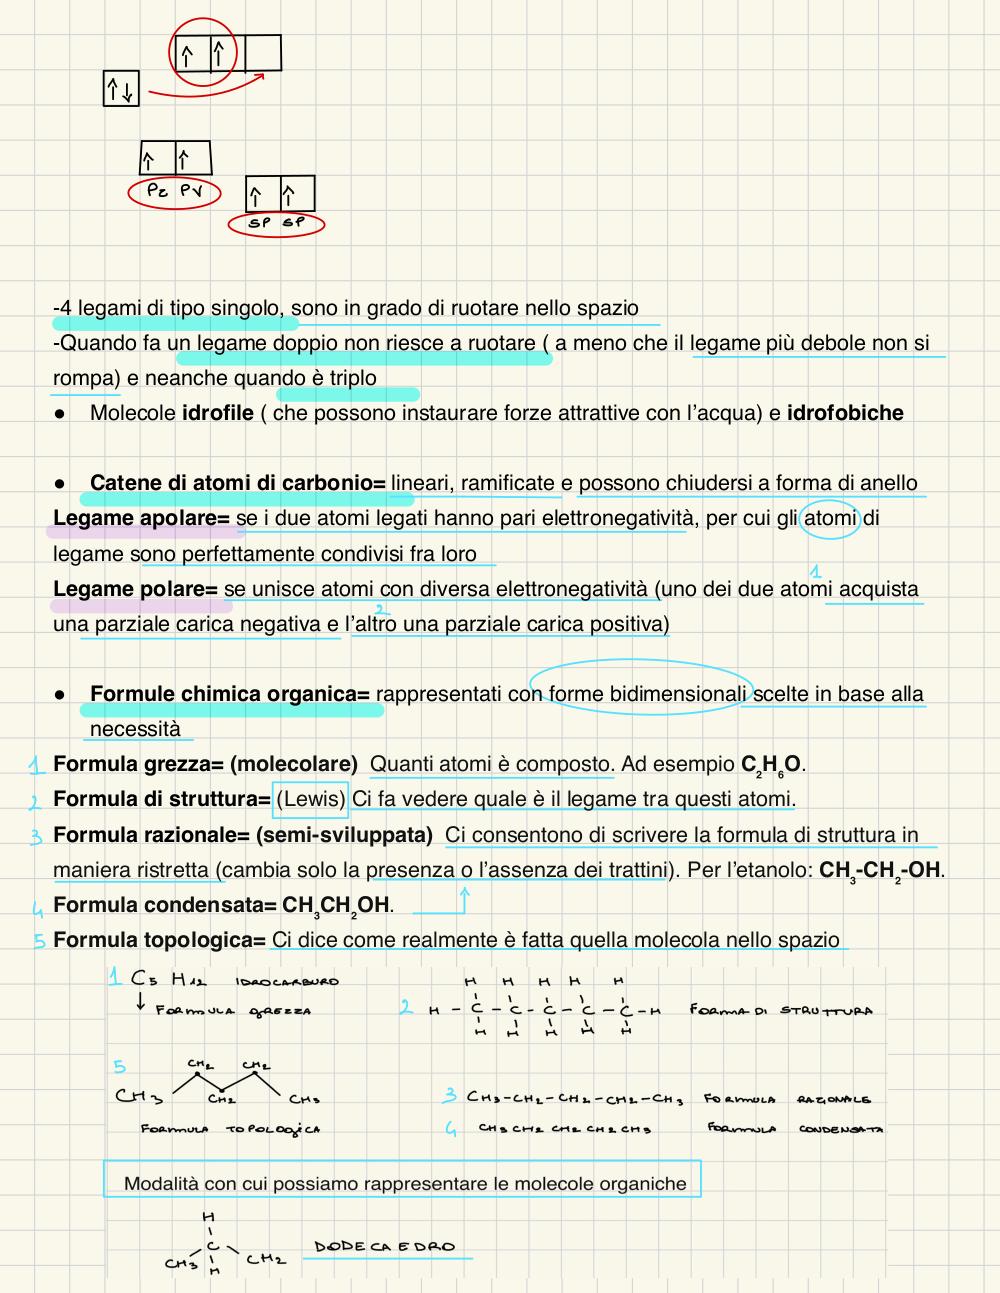 Pz Py
SP SP
-4 legami di tipo singolo, sono in grado di ruotare nello spazio
-Quando fa un legame doppio non riesce a ruotare ( a meno che il legame più debole non si
rompa) e neanche quando è triplo
● Molecole idrofile ( che possono instaurare forze attrattive con l'acqua) e idrofobiche
● Catene di atomi di carbonio= lineari, ramificate e possono chiudersi a forma di anello
Legame apolare= se i due atomi legati hanno pari elettronegatività, per cui gli atomi di
legame sono perfettamente condivisi fra loro
1
Legame polare= se unisce atomi con diversa elettronegatività (uno dei due atomi acquista
2
una parziale carica negativa e l'altro una parziale carica positiva)
● Formule chimica organica= rappresentati con forme bidimensionali scelte in base alla
necessità
1 Formula grezza= (molecolare) Quanti atomi è composto. Ad esempio C₂H₆O.
2 Formula di struttura= (Lewis) Ci fa vedere quale è il legame tra questi atomi.
3 Formula razionale= (semi-sviluppata) Ci consentono di scrivere la formula di struttura in
maniera ristretta (cambia solo la presenza o l'assenza dei trattini). Per l'etanolo: CH₃-CH₂-OH.
4 Formula condensata= CH₃CH₂OH.
5 Formula topologica= Ci dice come realmente è fatta quella molecola nello spazio
1 C5 H12 IDROCARBURO
FORMULA GREZZA
H H H H H
2 H - C - C - C - C - C - H FORMA DI STRUTTURA
H H H H H
5
CH2 CH2
CH3 CH2 CH3
FORMULA TOPOLOGICA
3 CH3-CH2-CH2-CH2-CH3 FORMULA RAZIONALE
4 CH3 CH2 CH2 CH2 CH3 FORMULA CONDENSATA
Modalità con cui possiamo rappresentare le molecole organiche
H
C
CH3 H CH2
DODECAEDRO